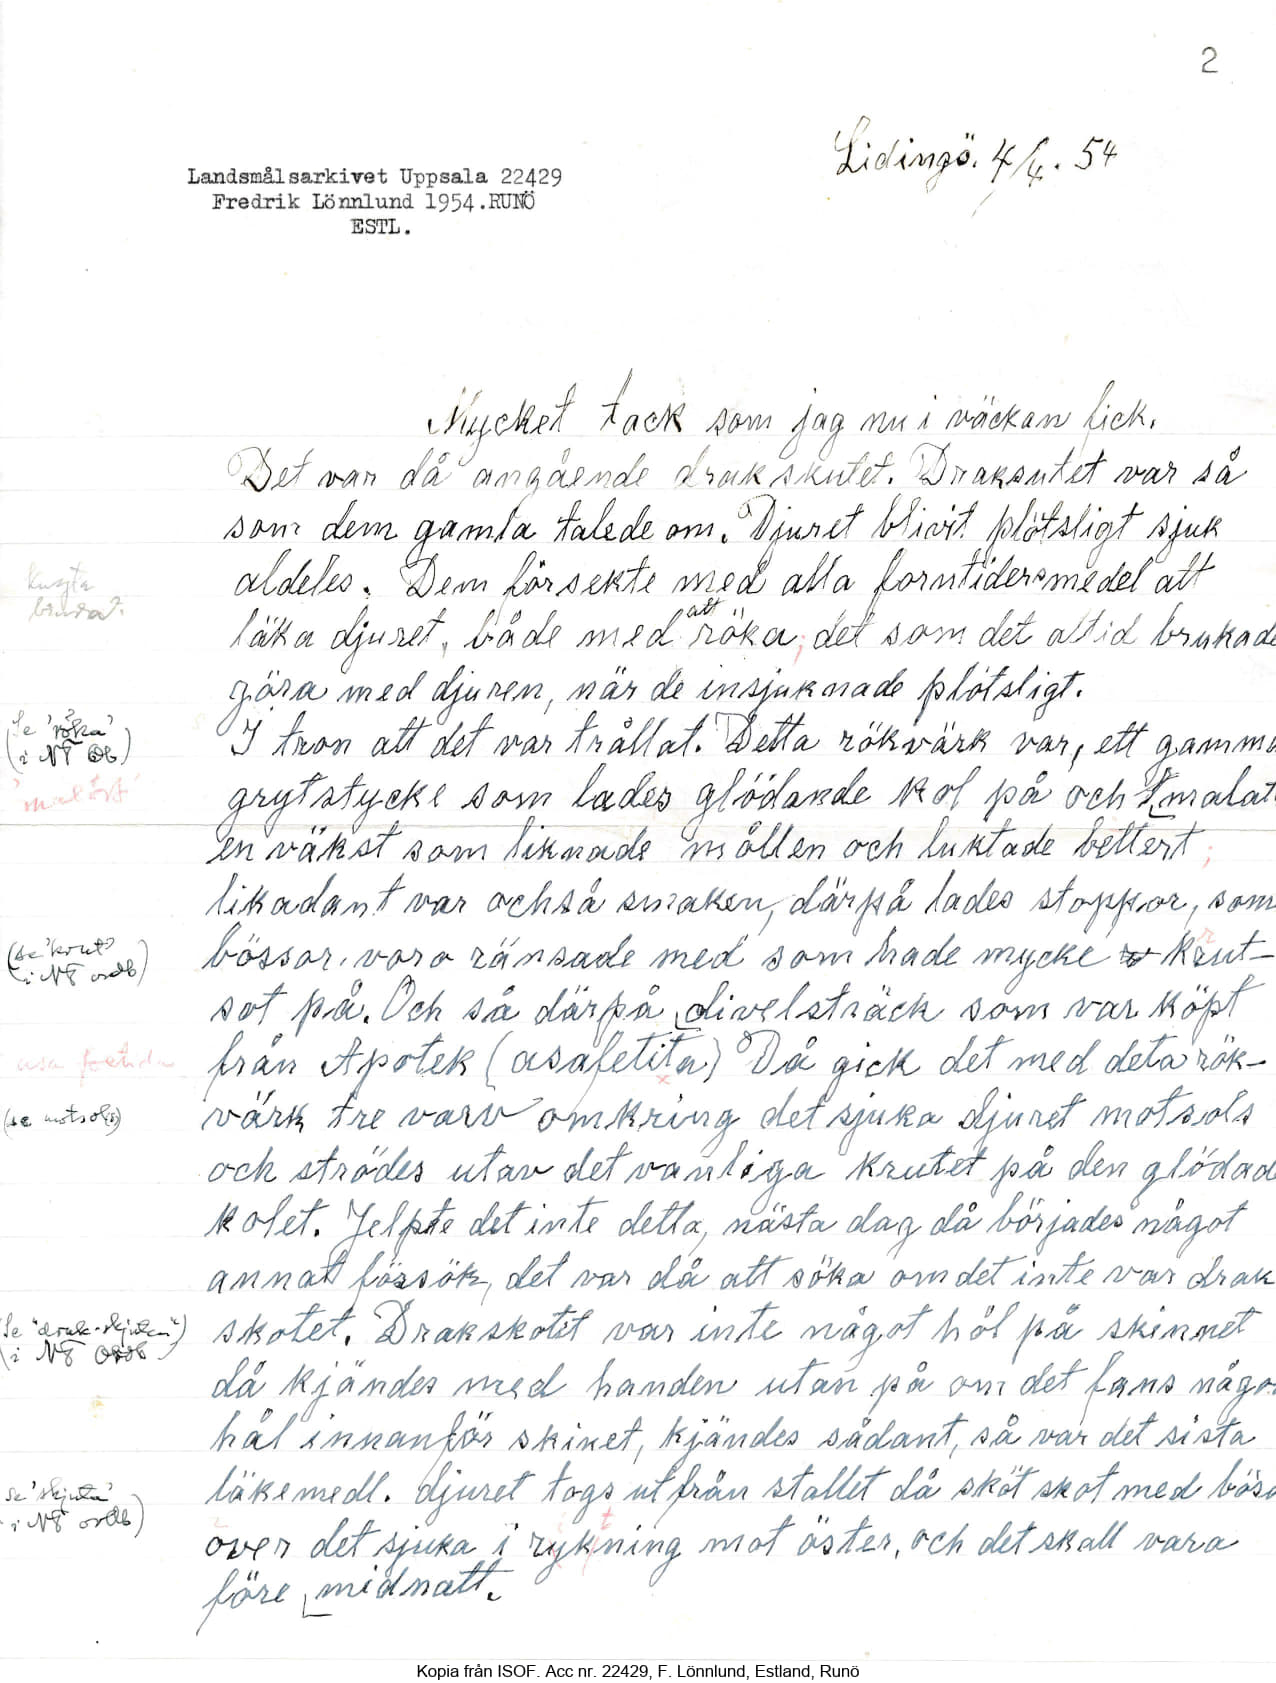 2
Lidingö. 4/4. 54
Landsmålsarkivet Uppsala 22429
Fredrik Lönnlund 1954.RUNÖ
ESTL.
Mycket tack som jag nu i väckan fick.
Det var då angående drakskutet. Draksutet var så
som dem gamla talede om. Djuret blivit plötsligt sjuk
aldeles. Dem försekte med alla forntidersmedel att
läka djuret, både med att röka, det som det altid brukade
göra med djuren, när de insjuknade plötsligt.
Se 'röka'
(i NT Ob)
I tron att det var trållat. Detta rökvärk var, ett gamma
'malört'
grytstycke som lades glödande kol på och malat
en väkst som liknade mållen och luktade bettert;
likadant var ochså smaken, därpå lades stoppor, som
(se 'krut'
i NT ordb)
bössor. voro ränsade med som hade mycke krut-
sot på. Och så därpå divelsträck som var köpt
asa foetida
från Apotek (asafetita) Då gick det med deta rök-
(se motsols)
värk tre varv omkring det sjuka djuret motsols
och strödes utav det vanliga krutet på den glödad
kolet. Jelpte det inte detta, nästa dag då börjades något
annat försök, det var då att söka om det inte var drak
Se "drak-skjuten")
(i NT Ordb
skotet. Drakskotit var inte något hål på skinnet
då kjändes med handen utan på om det fans någo
hål innanför skinet, kjändes sådant, så var det sista
se 'skjuta'
i NT ordb)
läkemedl. djuret togs ut från stallet då sköt skot med böso
över det sjuka i ryktning mot öster, och det skall vara
före midnatt.
Kopia från ISOF. Acc nr. 22429, F. Lönnlund, Estland, Runö